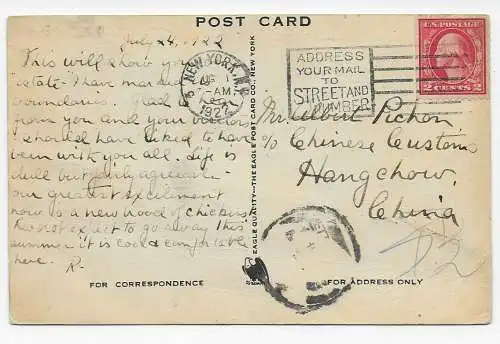 POST CARD
July 26, 1922
This will show you
estate - I have marked
boundaries. Glad to
from you and your
I should have liked to have
been with you all. Life is
dull but fairly
our greatest excitement
now is a new brood of chickens
Do not expect to go away this
summer it is cool & comfortable
here. R-
NEW YORK, N.Y.
AM
1922
ADDRESS
YOUR MAIL
TO
STREET AND
NUMBER
U.S. POSTAGE
2 CENTS 2
Mr. Albert Pichon
c/o Chinese Customs
Hangchow,
China
EAGLE QUALITY - THE EAGLE POST CARD CO., NEW YORK
FOR CORRESPONDENCE
FOR ADDRESS ONLY